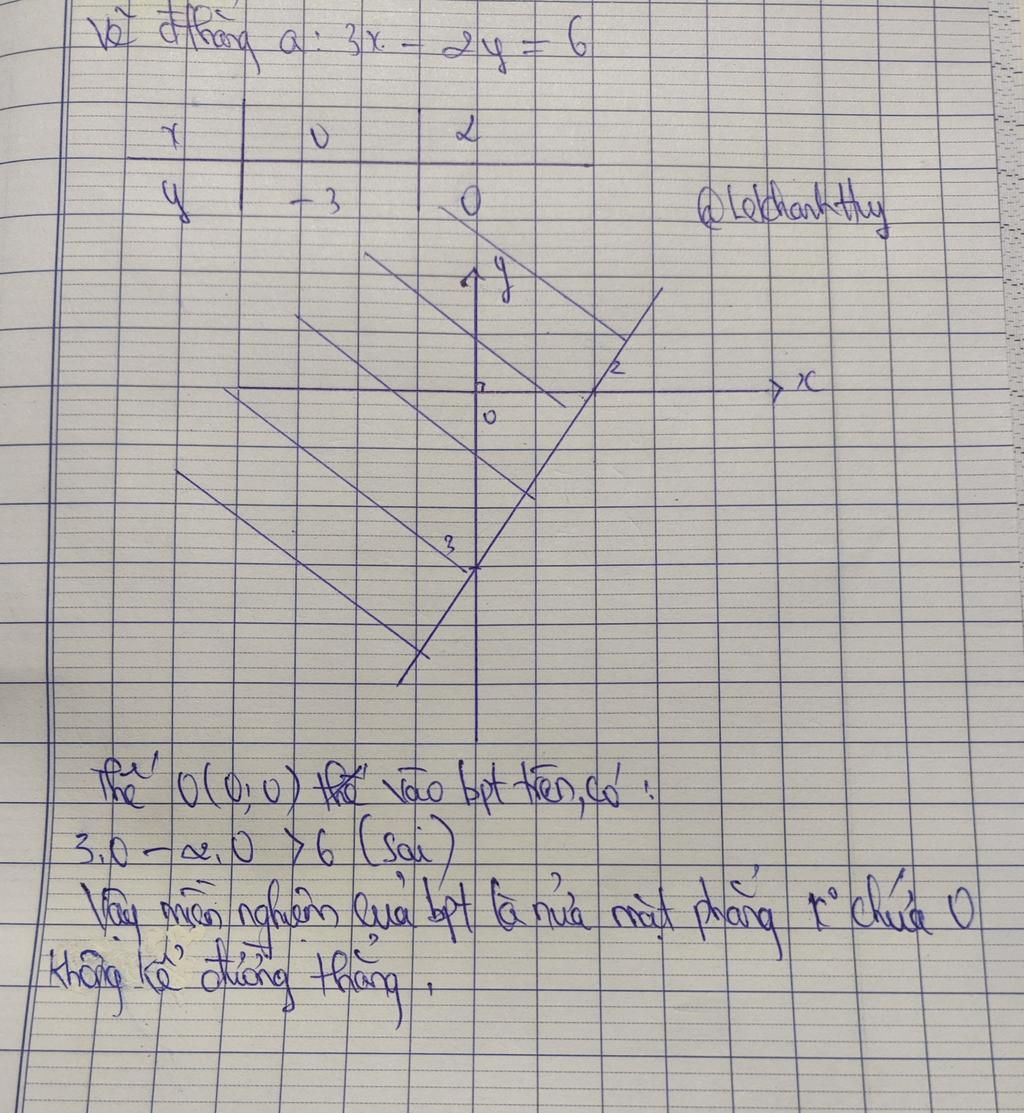 Vẽ đthẳng a: 3x - 2y = 6
x 0 2
y -3 0
@Lekhanhthy
y
2
x
0
3
Thế O(0;0) thế vào bpt trên, có:
3.0 - 2.0 > 6 (sai)
Vậy miền nghiệm của bpt là nửa mặt phẳng k° chứa O
không kể đường thẳng.